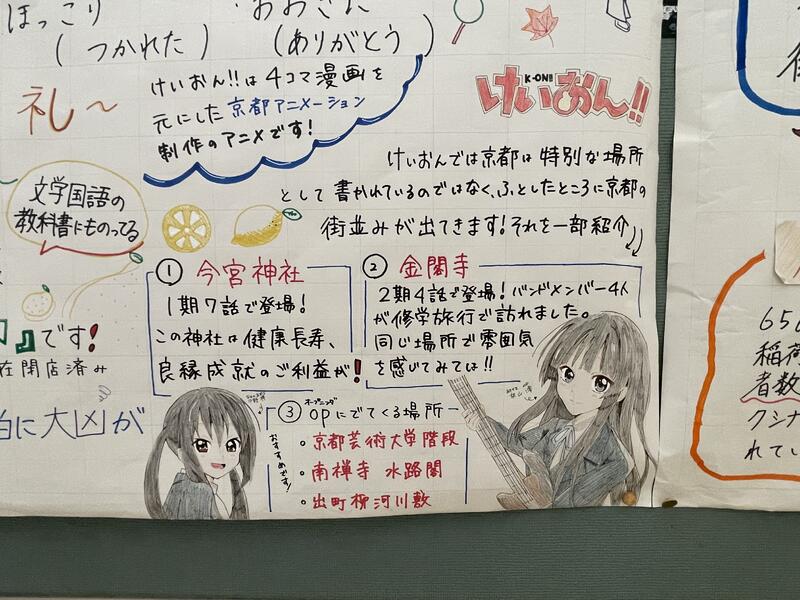 ほっこり
(つかれた)
おおきに
(ありがとう)
礼〜
けいおん!!は4コマ漫画を
元にした京都アニメーション
制作のアニメです!
K-ON!!
けいおん!!
けいおんでは京都は特別な場所
として書かれているのではなく、ふとしたところに京都の
街並みが出てきます!それを一部紹介
文学国語の
教科書にものってる
① 今宮神社
1期7話で登場!
この神社は健康長寿、
良縁成就のご利益が!
② 金閣寺
2期4話で登場!バンドメンバー4人
が修学旅行で訪れました。
同じ場所で雰囲気
を感じてみては!!
③ opにでてくる場所
オープニング
おすすめです!
・京都芸術大学階段
・南禅寺 水路閣
・出町柳河川敷
』です!
在閉店済み
に大凶が
稲荷
者数
クシナ
れてい